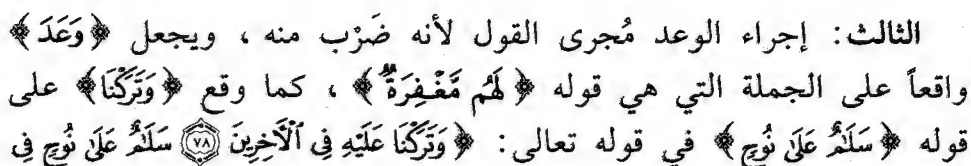 الثالث: إجراء الوعد مُجرى القول لأنه ضَرْب منه ، ويجعل ﴿وَعَدَ﴾
واقعاً على الجملة التي هي قوله ﴿لَهُم مَّغْفِرَةٌ﴾ ، كما وقع ﴿وَتَرَكْنَا﴾ على
قوله ﴿سَلَٰمٌ عَلَىٰ نُوحٍ﴾ في قوله تعالى: ﴿وَتَرَكْنَا عَلَيْهِ فِي ٱلْآخِرِينَ ٧٨ سَلَٰمٌ عَلَىٰ نُوحٍ فِي